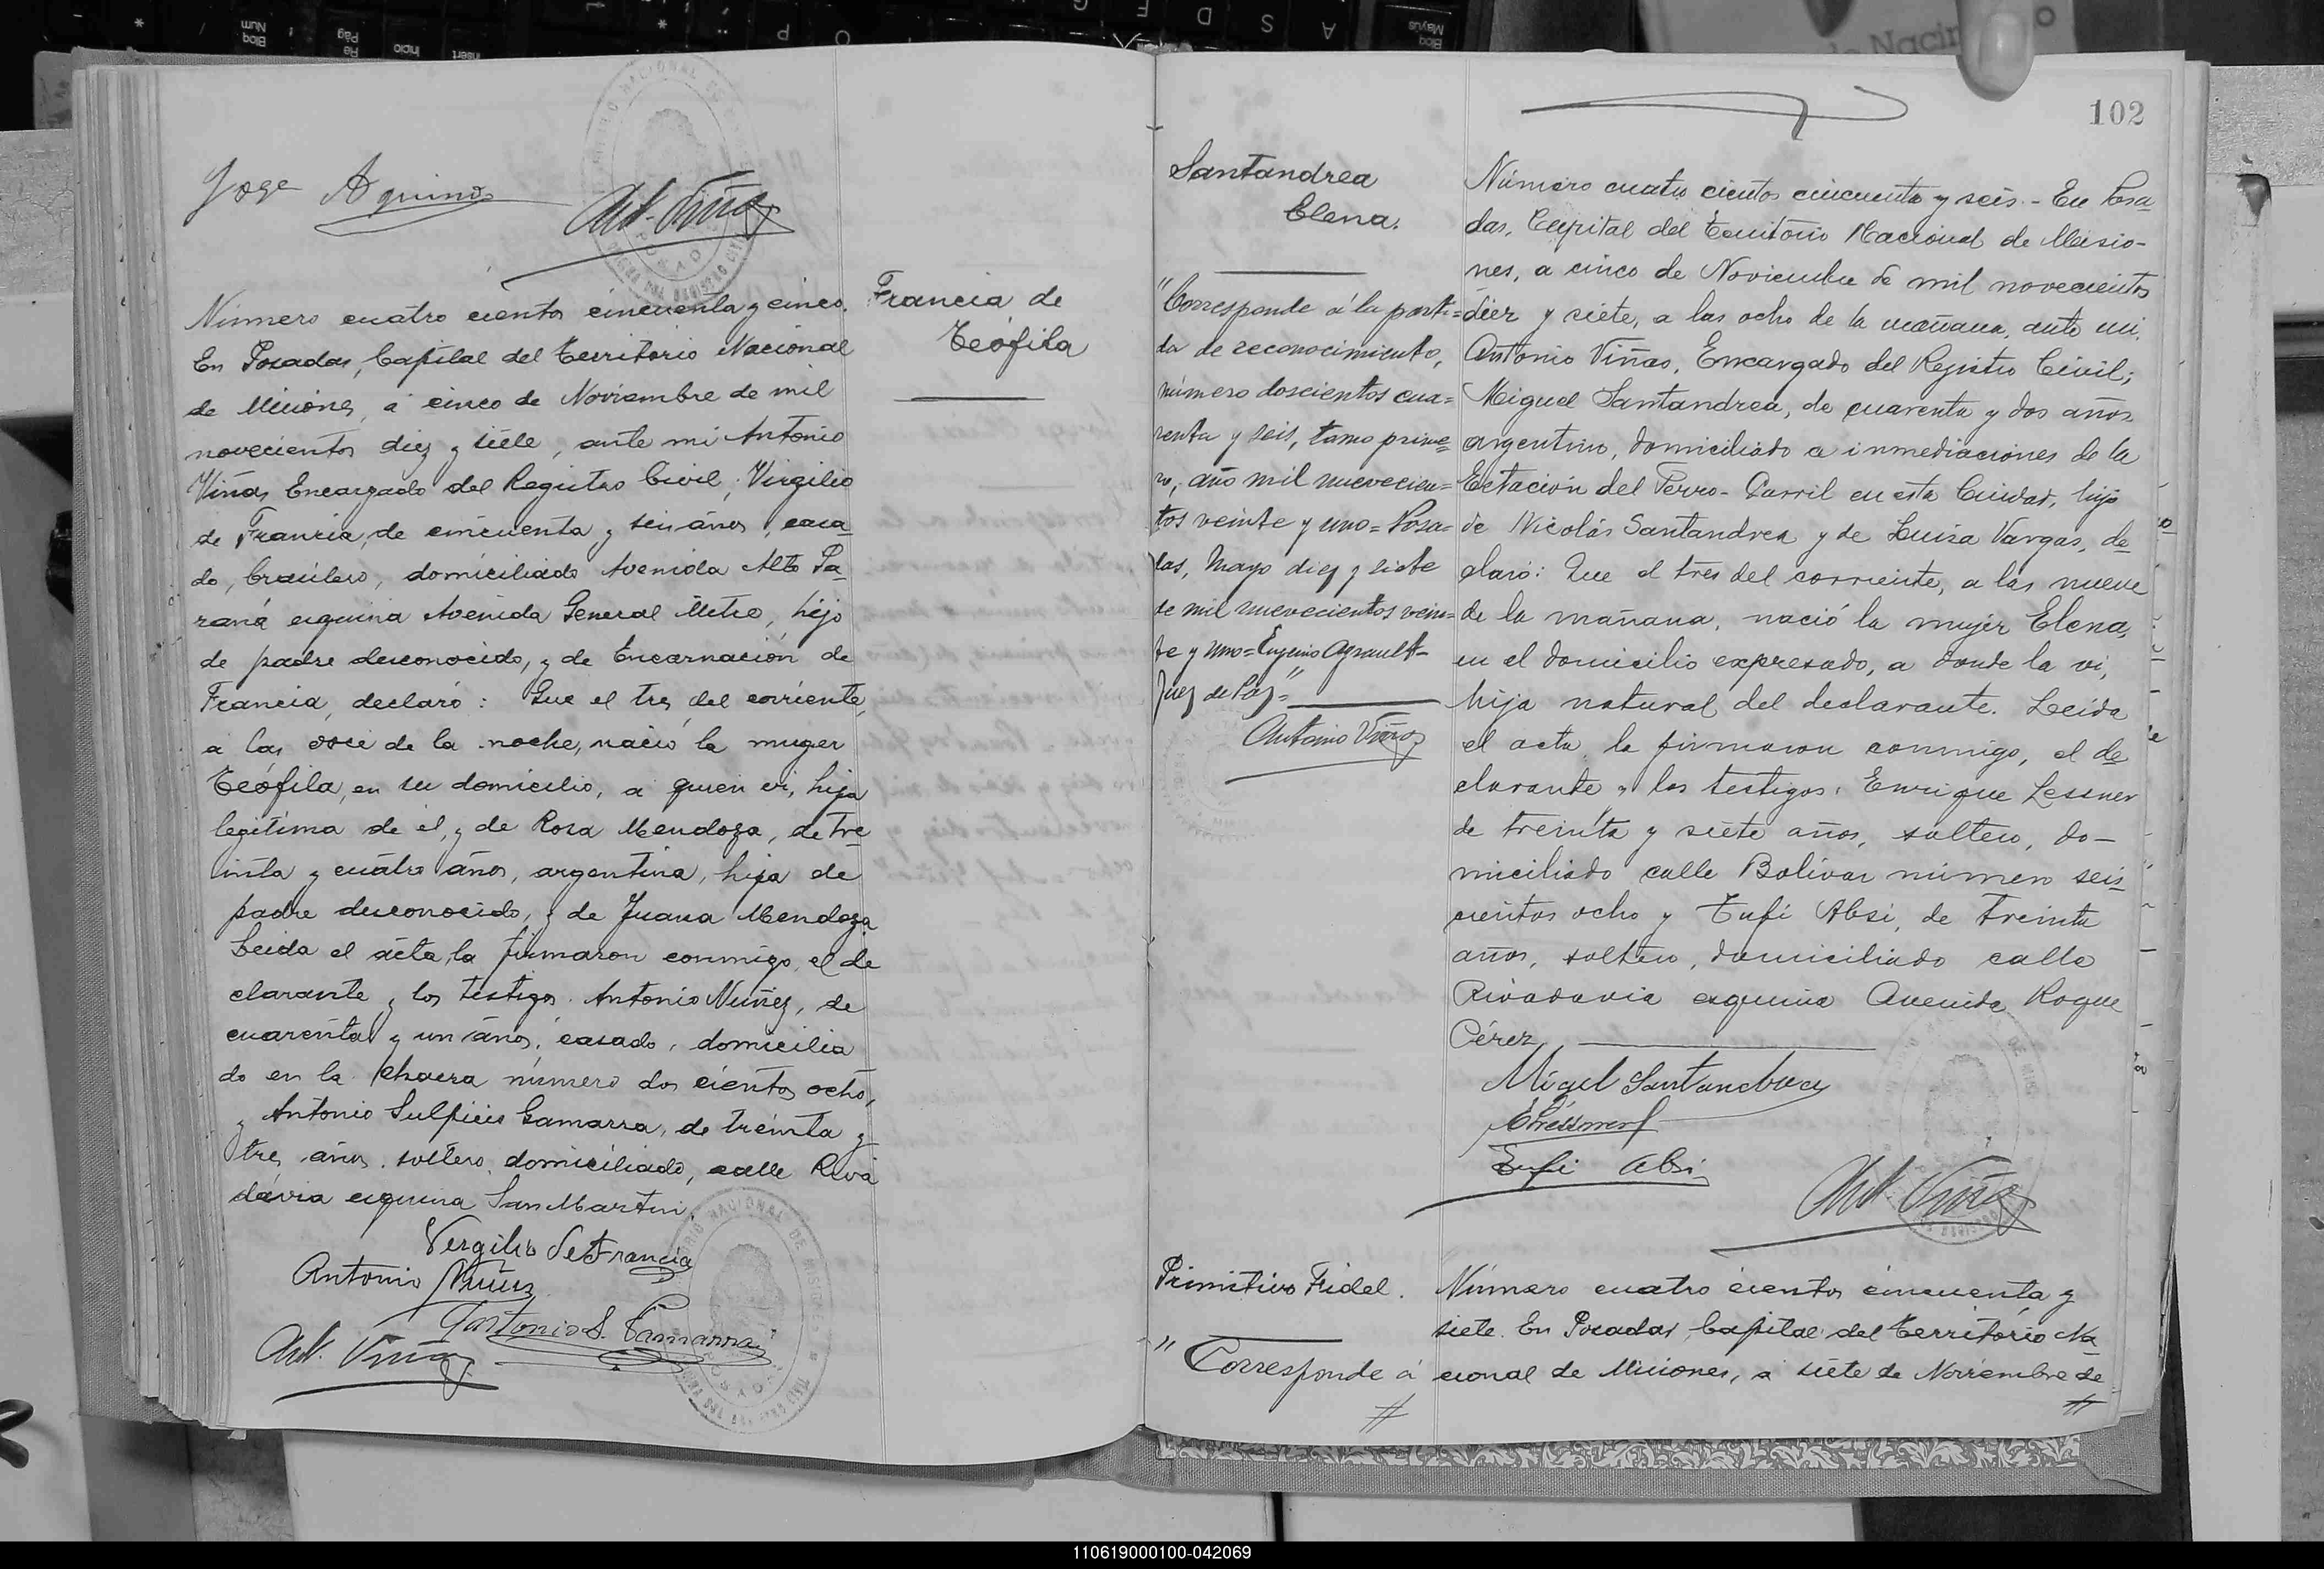 Jose Aquino
Ant. Viñas
Francia de
Teófila
Número cuatro cientos cincuenta y cinco.
En Posadas, Capital del Territorio Nacional
de Misiones, á cinco de Noviembre de mil
novecientos diez y siete, ante mi Antonio
Viñas Encargado del Registro Civil; Virgilio
de Francia, de cincuenta y seis años, casa
do, brasilero, domiciliado Avenida Alto Pa-
raná esquina Avenida General Mitre, hijo
de padre desconocido, y de Encarnación de
Francia, declaró: Que el tres del corriente,
á las once de la noche, nació la muger
Teófila, en su domicilio, a quien vi, hija
legítima de él, y de Rosa Mendoza, de tre
inta y cuatro años, argentina, hija de
padre desconocido, y de Juana Mendoza
Leida el acta, la firmaron conmigo, el de
clarante y los testigos Antonio Nuñez, de
cuarenta y un años, casado, domicilia
do en la chacra número dos cientos ocho,
y Antonio Sulpicio Gamarra, de treinta y
tres años, soltero, domiciliado, calle Riva
davia esquina San Martin.
Vergilio de Francia
Antonio Nuñez
Antonio S. Gamarra
Ant. Viñas
102
Santandrea
Elena.
"Corresponde á la parti=
da de reconocimiento,
número doscientos cua=
renta y seis, tomo prime=
ro, año mil nuevecien=
tos veinte y uno = Posa=
das, Mayo diez y siete
de mil nuevecientos vein=
te y uno = Eugenio Agrault -
Juez de Paz"
Antonio Viñas
Número cuatro cientos cincuenta y seis. - En Posa
das, Capital del Territorio Nacional de Misio-
nes, a cinco de Noviembre de mil novecientos
diez y siete, a las ocho de la mañana, ante mi,
Antonio Viñas, Encargado del Registro Civil;
Miguel Santandrea, de cuarenta y dos años
argentino, domiciliado a inmediaciones de la
Estación del Ferro-Carril en esta Ciudad, hijo
de Nicolás Santandrea y de Luisa Vargas, de
claró: Que el tres del corriente, a las nueve
de la mañana, nació la mujer Elena,
en el domicilio expresado, a donde la vi,
hija natural del declarante. Leída
el acta, la firmaron conmigo, el de
clarante y los testigos: Enrique Lessner
de treinta y siete años, soltero, do-
miciliado calle Bolívar número seis
cientos ocho y Tufi Absi, de treinta
años, soltero, domiciliado calle
Rivadavia esquina Avenida Roque
Pérez
Migel Santandrea
Tufi Absi
Ant. Viñas
Primitivo Fidel.
" Corresponde á
#
Número cuatro cientos cincuenta y
siete. En Posadas, Capital del Territorio Na
cional de Misiones, a siete de Noviembre de
#
110619000100-042069